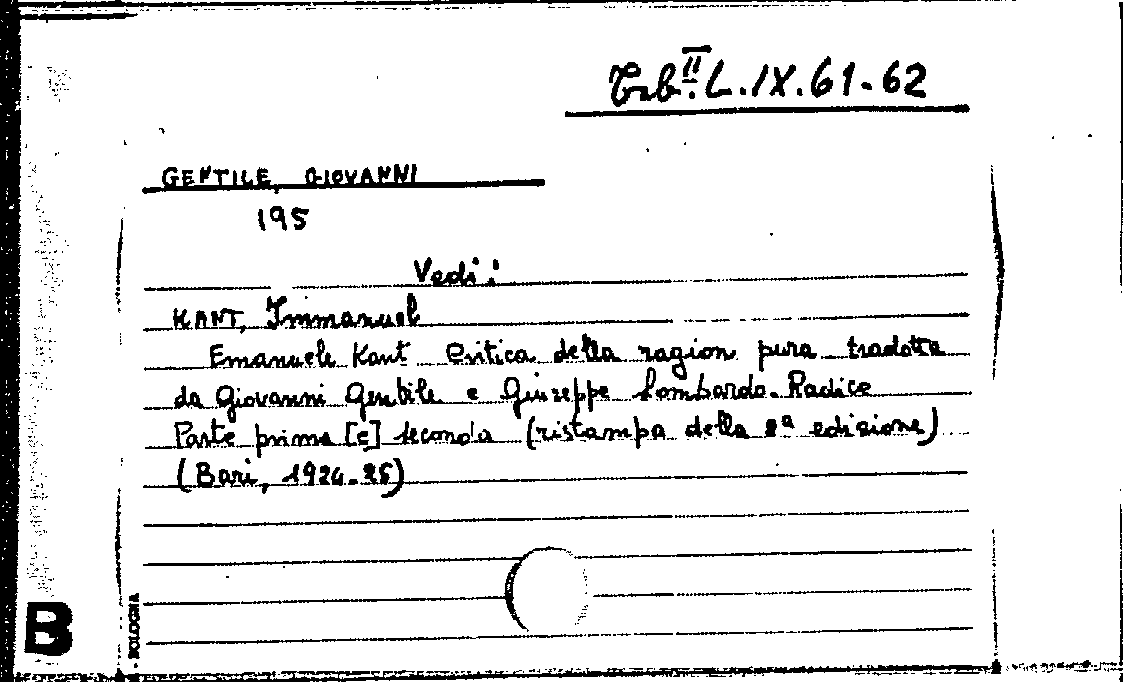 Tab. II. L. IX. 61-62
GENTILE, GIOVANNI
195
Vedi:
KANT, Immanuel
Emanuele Kant Critica della ragion pura tradotta
da Giovanni Gentile e Giuseppe Lombardo-Radice
Parte prima [e] seconda (ristampa della 2ª edizione)
(Bari, 1924-25)
B
- BOLOGNA